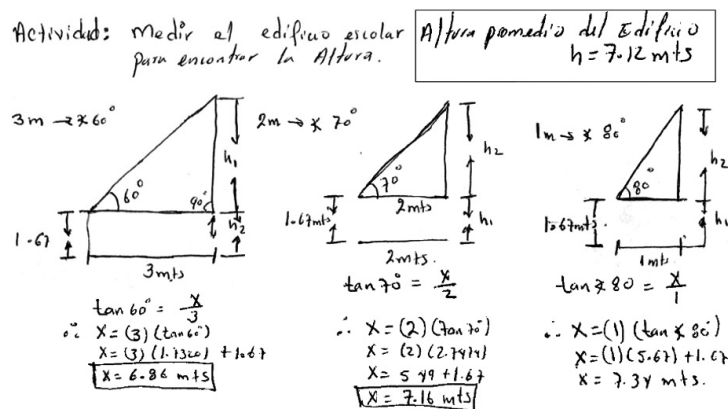 Actividad: Medir el edificio escolar
para encontrar la Altura.
Altura promedio del Edificio
h = 7.12 mts
3m → ∡ 60°
60°
90°
h₁
h₂
1.67
3mts
tan 60° = x/3
∴ X = (3) (tan 60°)
X = (3) (1.7320) + 1.67
X = 6.86 mts
2m → ∡ 70°
70°
2mts
h₂
h₁
1.67mts
2mts.
tan 70° = x/2
∴ X = (2) (Tan 70°)
X = (2) (2.7474)
X = 5.49 + 1.67
X = 7.16 mts
1m → ∡ 80°
80°
h₂
h₁
1.67mts.
1mts.
tan ∡ 80 = x/1
∴ X = (1) (tan ∡ 80°)
X = (1) (5.67) + 1.67
X = 7.34 mts.